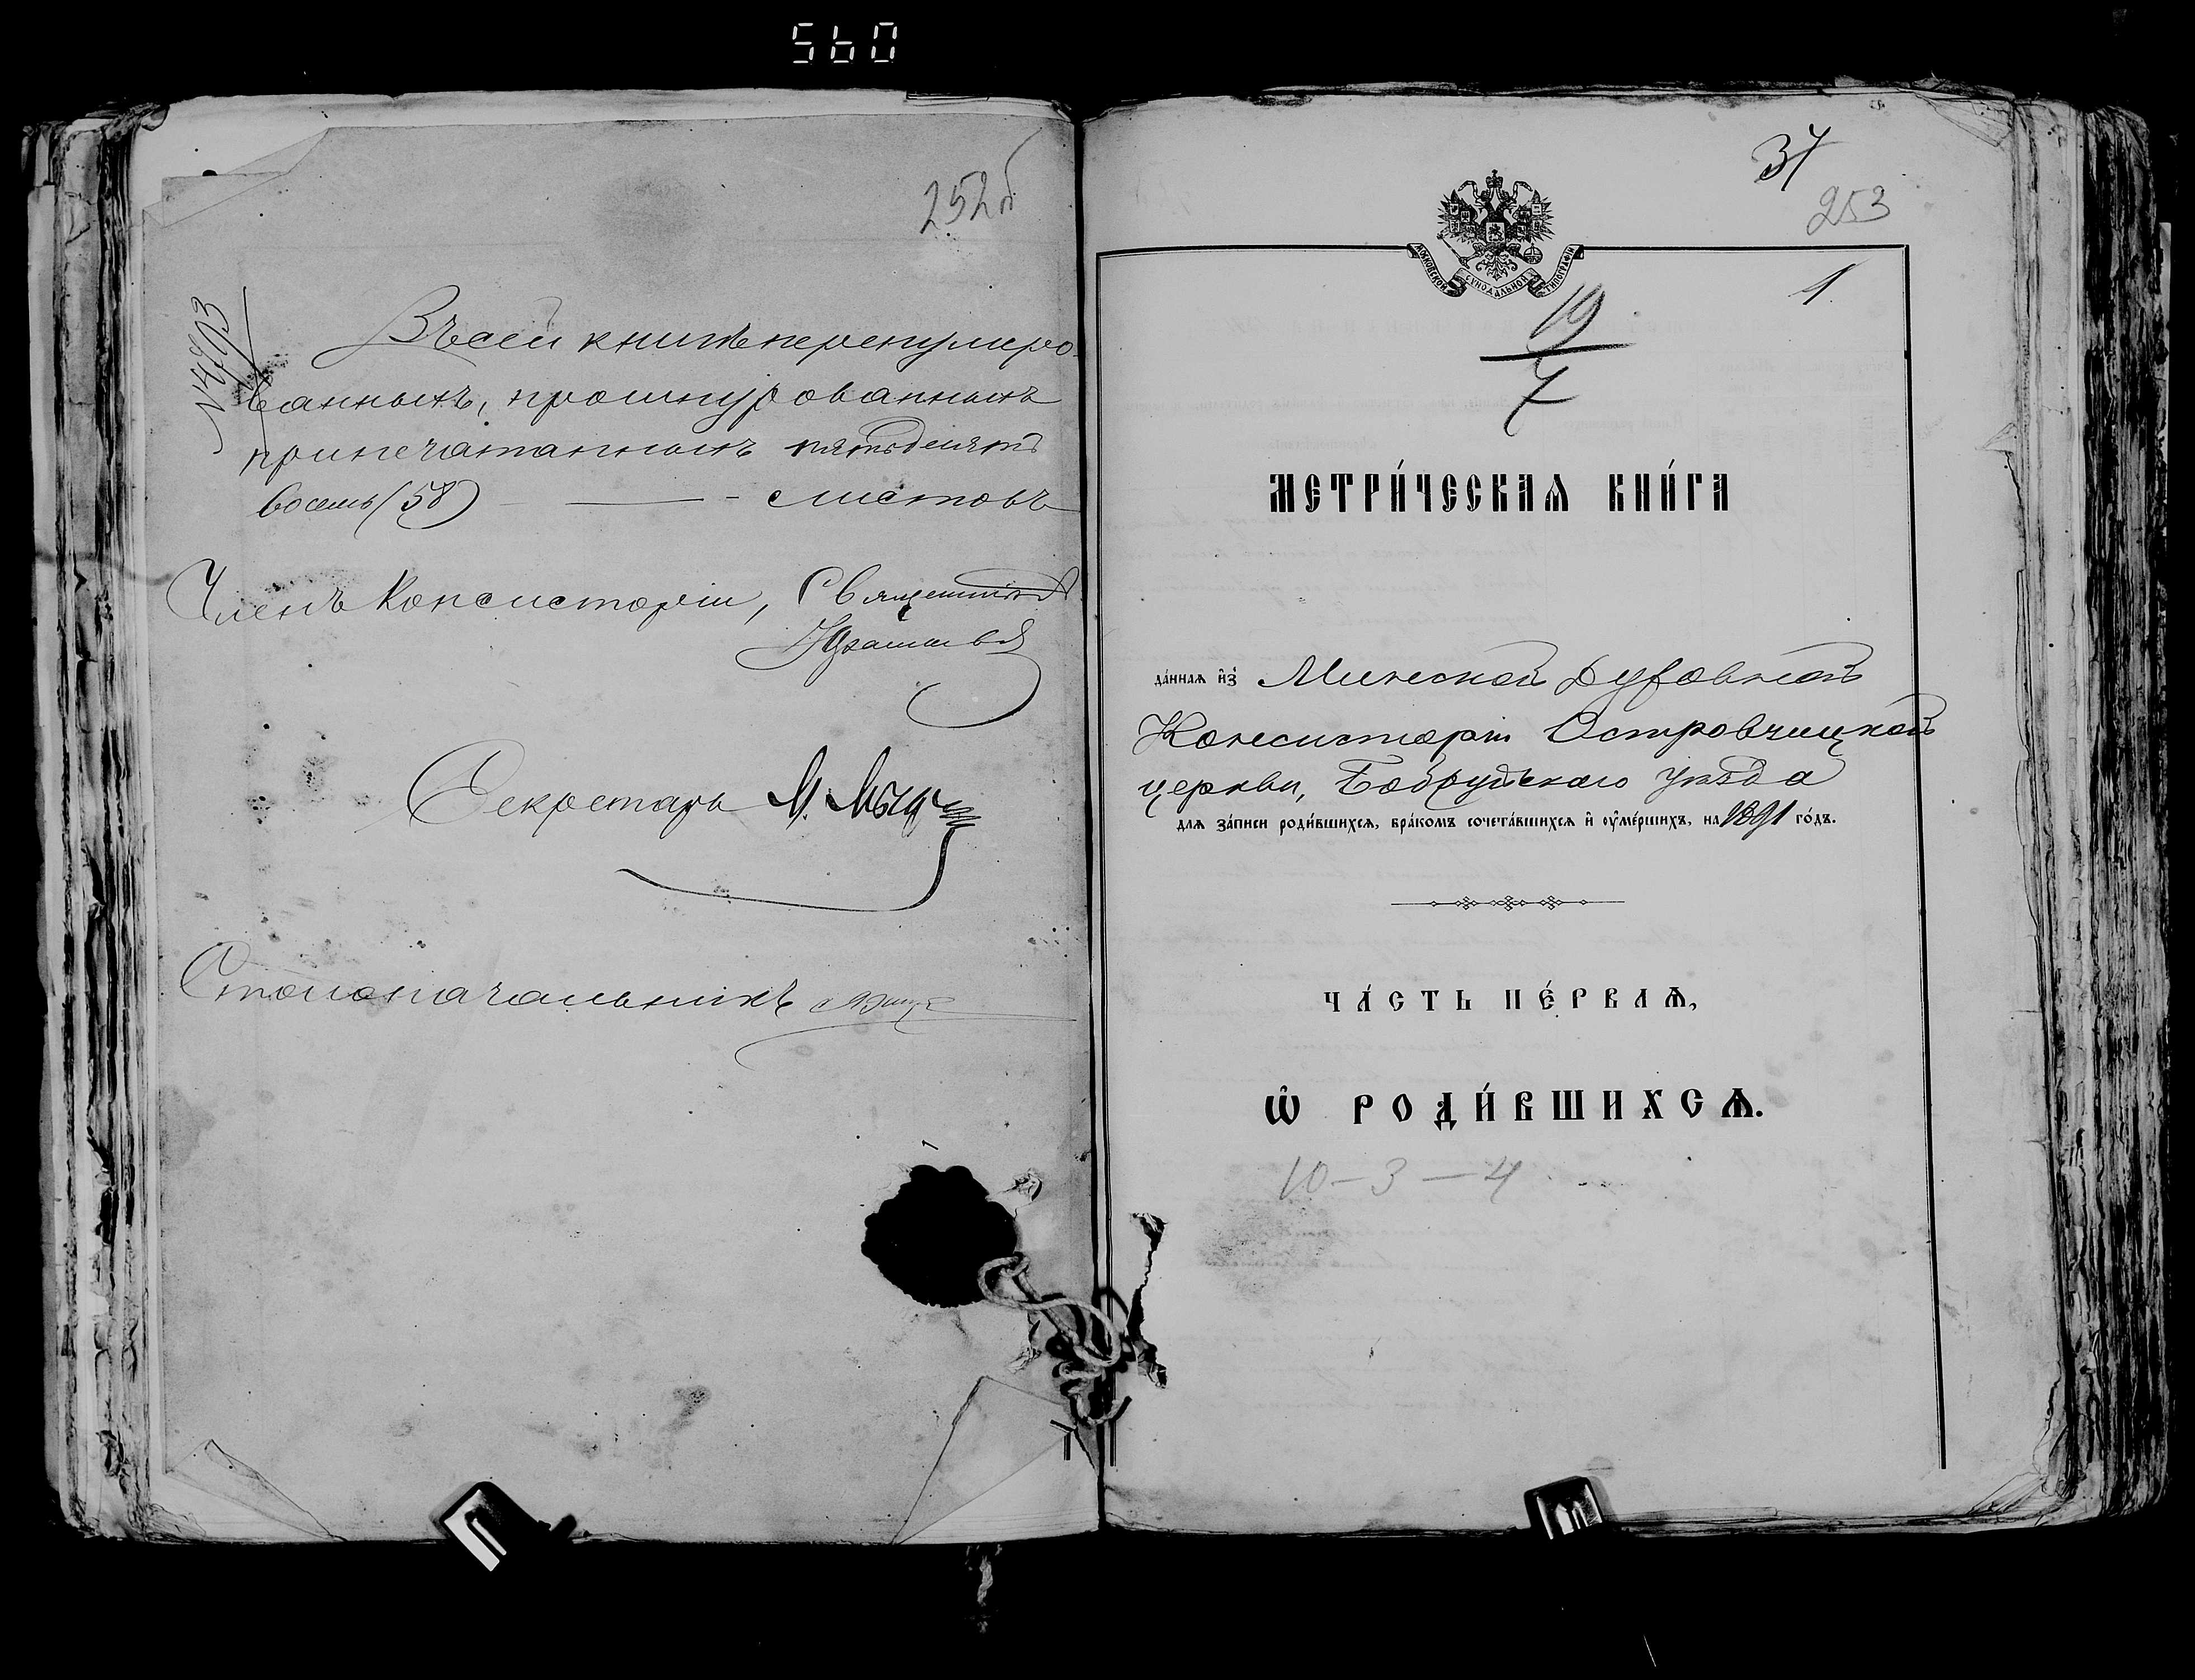 560
252б
№4793
Въ сей книгѣ перенумеро-
ванныхъ, прошнурованныхъ
припечатанныхъ пятьдесятъ
восемь (58) листовъ
Членъ Консисторіи, Священникъ
Секретарь М.
Столоначальникъ
37
253
1
МОСКОВСКОЙ СѴНОДАЛЬНОЙ ТИПОГРАФІИ
19
7
МЕТРИ́ЧЕСКАѦ КНИ́ГА
да́ннаѧ и҆зъ Минской Духовной
Консисторіи Островчицкой
церкви, Бобруйскаго уѣзда
длѧ за́писи роди́вшихсѧ, бра́комъ сочета́вшихсѧ и҆ ᲂу҆ме́ршихъ, на 1891 го́дъ.
ЧА́СТЬ ПЕ́РВАѦ,
Ѽ РОДИ́ВШИХСѦ.
10-3-4